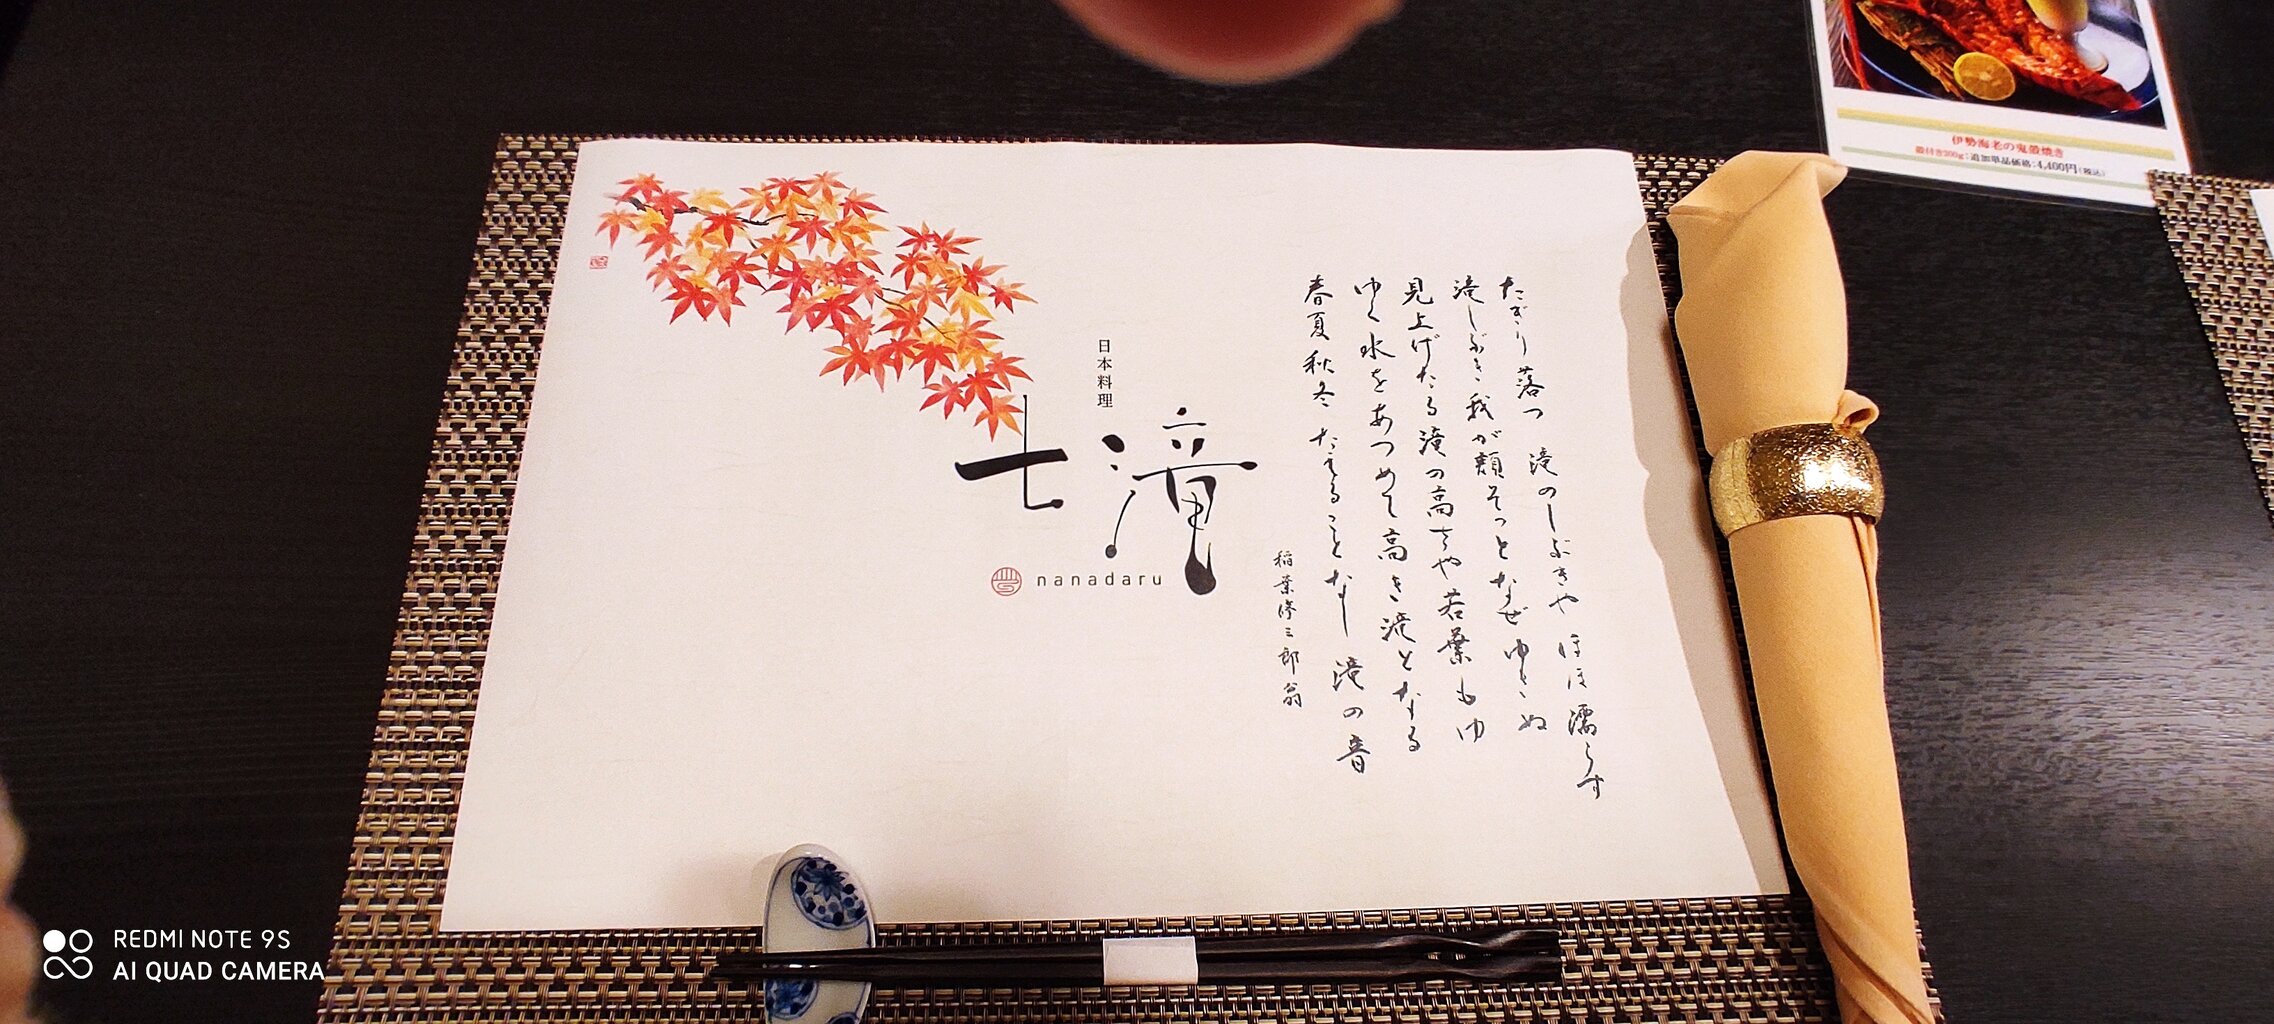 日本料理
七滝
nanadaru
たぎり落つ 滝のしぶきや ほほ濡らす
滝しぶき 我が頬そっとなぜ ゆきぬ
見上げたる滝の高さや若葉もゆ
ゆく水をあつめて高き滝となる
春夏秋冬 たえることなし 滝の音
稲葉修三郎翁
伊勢海老の鬼殻焼き
殻付き300g：追加単品価格：4,400円(税込)
REDMI NOTE 9S
AI QUAD CAMERA